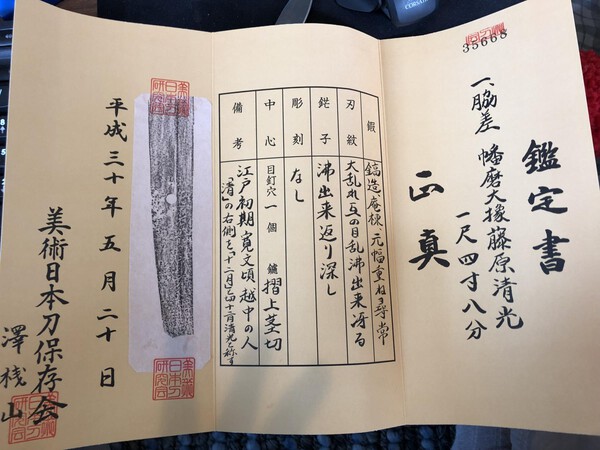 35668
鑑定書
一、脇差 幡磨大掾藤原清光
一尺四寸八分
正真
鍜 鎬造庵棟元幅重ね尋常
刃紋 大乱れ互の目乱沸出来冴る
鋩子 沸出来返り深し
彫刻 なし
中心 目釘穴 一個 鑢 摺上芝切
備考 江戸初期寛文頃越中の人
「清」の右側を 清光と称す
平成三十年五月二十日
美術日本刀保存会
澤 山